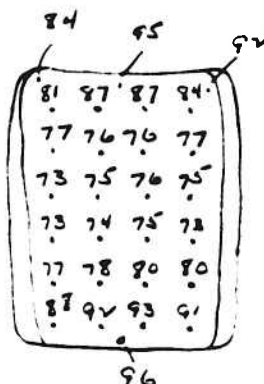 84 95 92
81 87 87 84
77 76 76 77
73 75 76 75
73 74 75 73
77 78 80 80
88 92 93 91
96